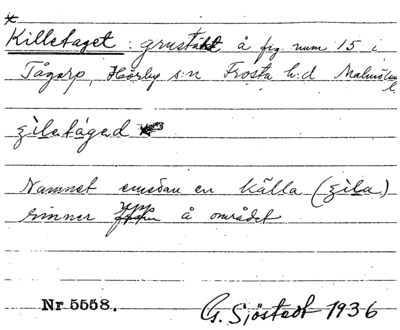 Killetaget : grustäkt å fig. num 15 i
Tågarp, Hörby s:n Frosta h:d Malmöhus
l.
zìletáged
Namnet emedan en källa (zìla)
rinner upp å området
Nr 5558. G. Sjöstedt 1936